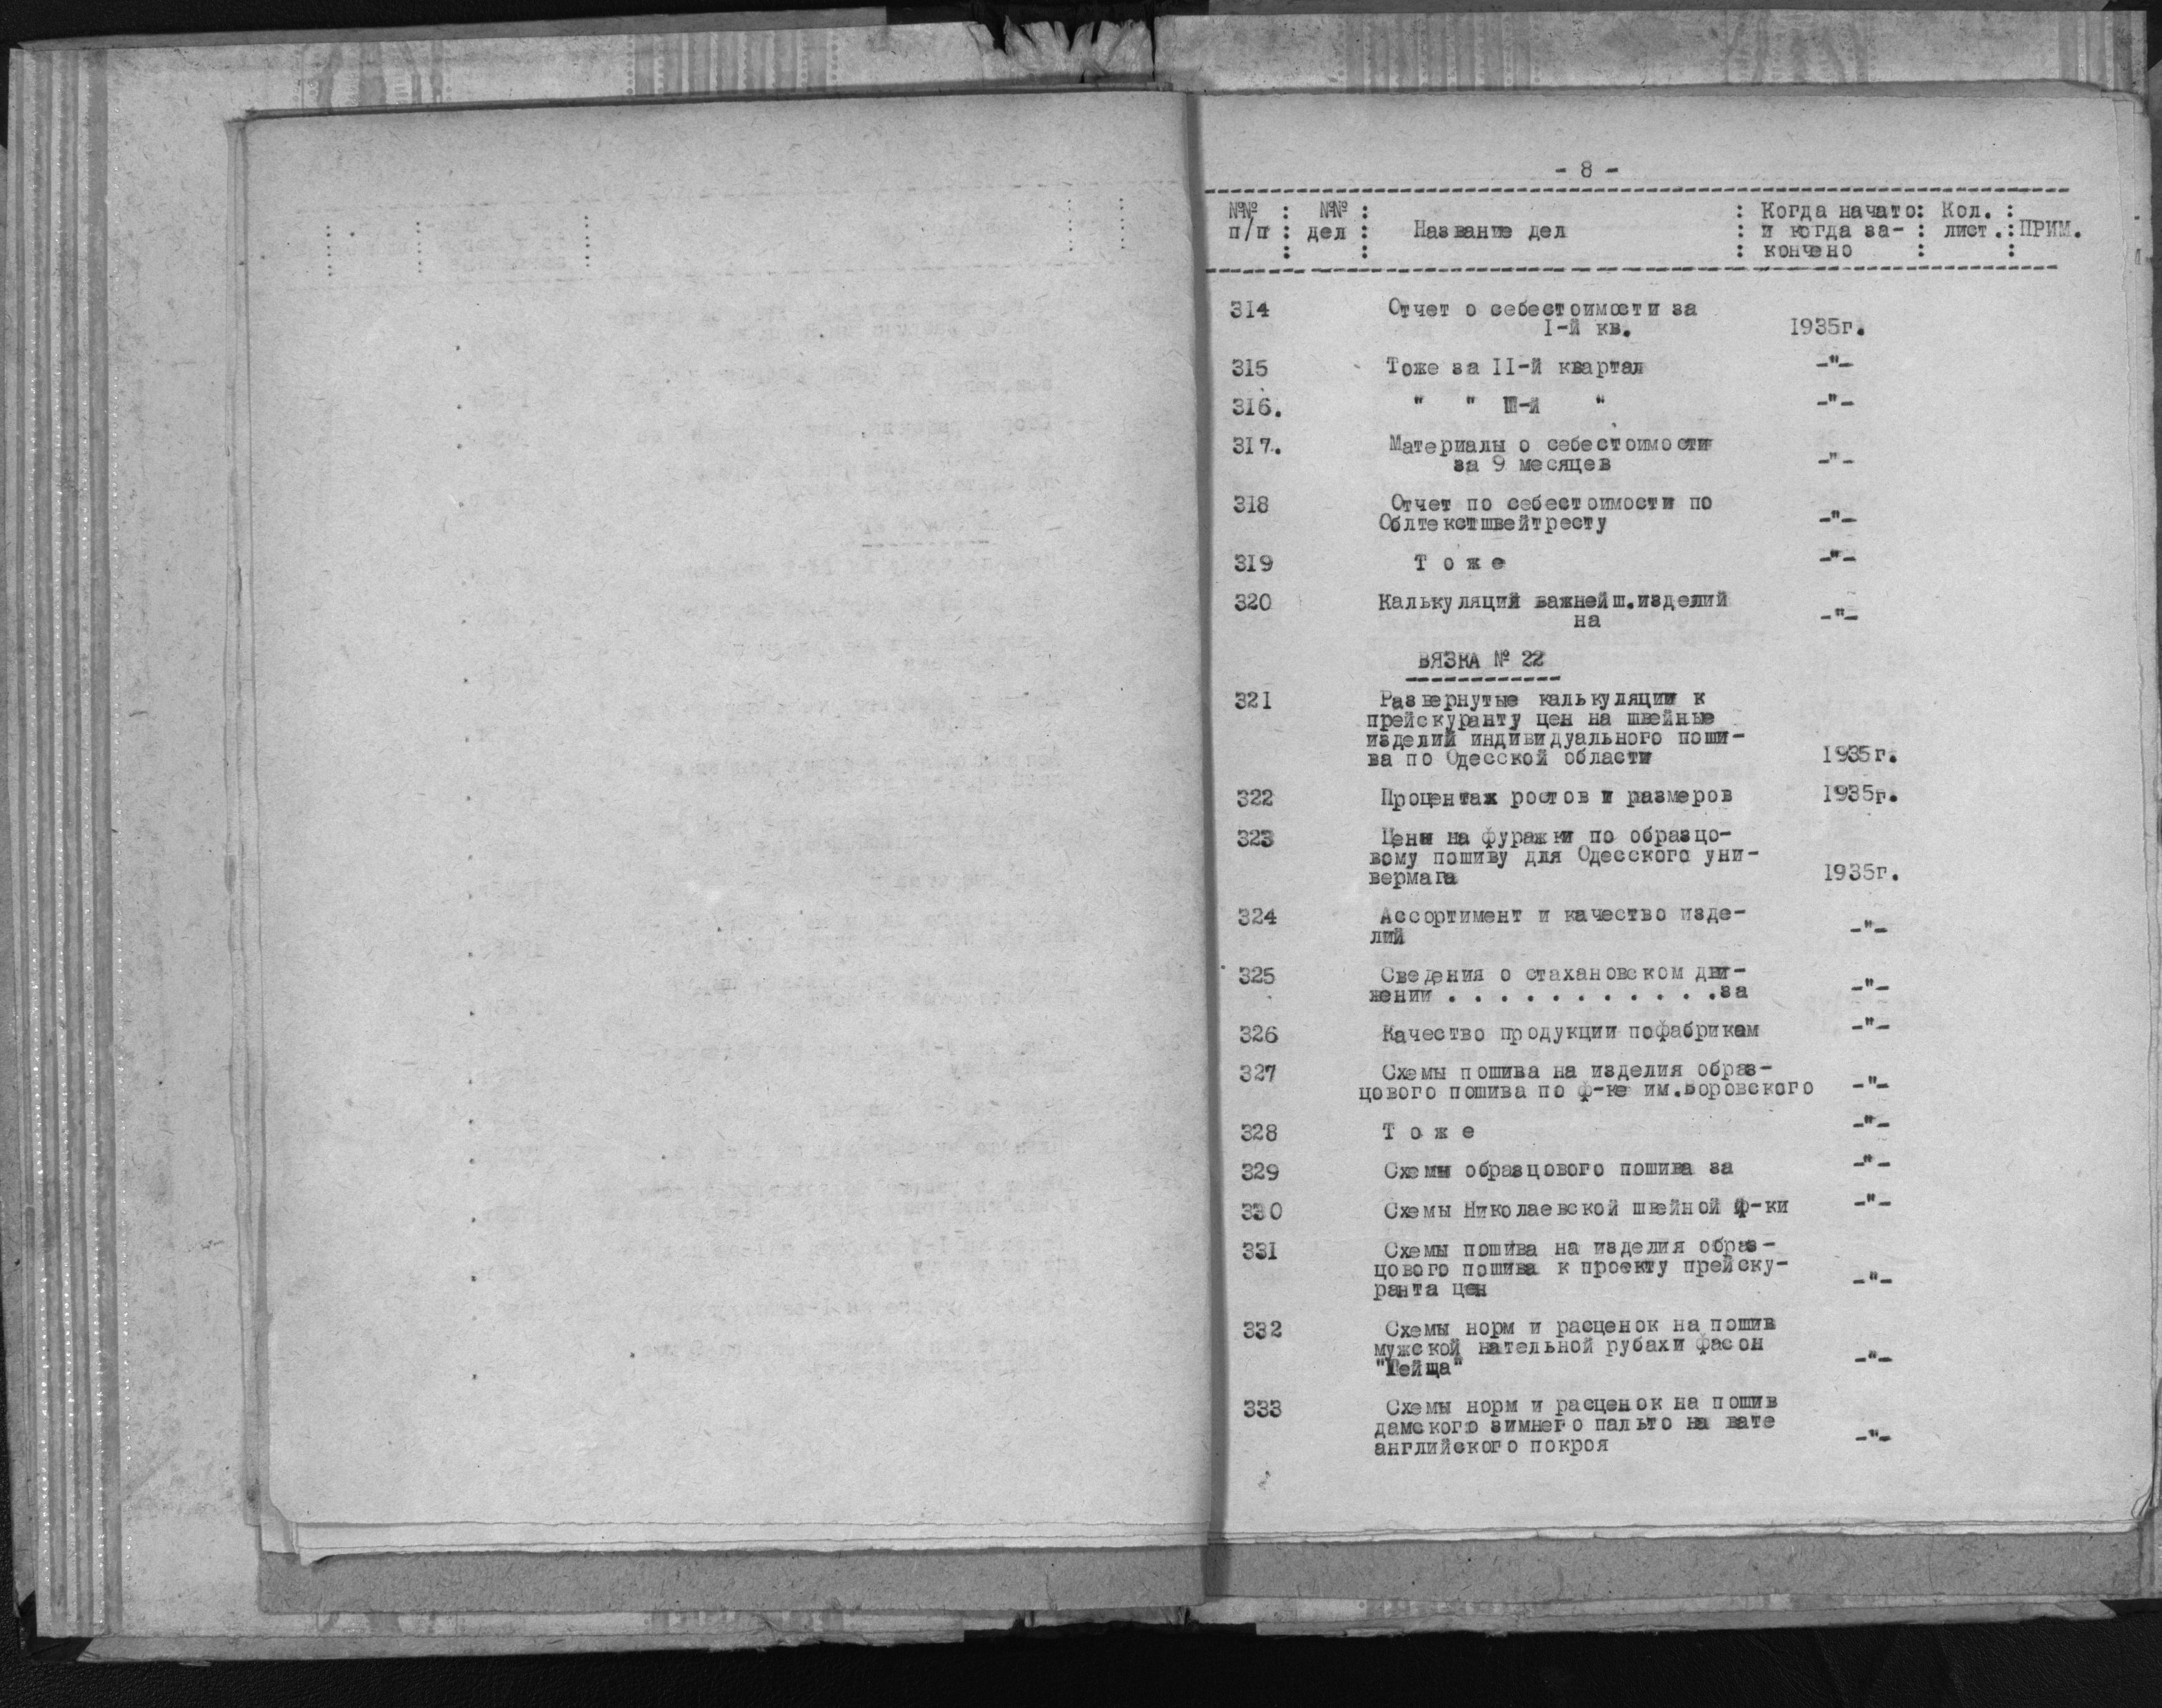 - 8 -
№№ : №№ : : Когда начато: Кол. :
п/п : дел : Название дел : и когда за- : лист.:ПРИМ.
: : : кончено : :
314 Отчет о себестоимости за
I-й кв. 1935г.
315 Тоже за II-й квартал -"-
316. " " Ш-й " -"-
317. Материалы о себестоимости
за 9 месяцев -"-
318 Отчет по себестоимости по
Облтекстшвейтресту -"-
319 Т о ж е -"-
320 Калькуляций важнейш.изделий
на -"-
ВЯЗКА № 22
321 Развернутые калькуляции к
прейскуранту цен на швейные
изделий индивидуального поши-
ва по Одесской области 1935г.
322 Процентаж ростов и размеров 1935г.
323 Цены на фуражки по образцо-
вому пошиву для Одесского уни-
вермага 1935г.
324 Ассортимент и качество изде-
лий -"-
325 Сведения о стахановском дви-
жении . . . . . . . . . . .за -"-
326 Качество продукции пофабрикам -"-
327 Схемы пошива на изделия образ-
цового пошива по ф-ке им.Воровского -"-
328 Т о ж е -"-
329 Схемы образцового пошива за -"-
330 Схемы Николаевской швейной ф-ки -"-
331 Схемы пошива на изделия образ-
цового пошива к проекту прейску-
ранта цен -"-
332 Схемы норм и расценок на пошив
мужской нательной рубахи фасон
-"-
333 Схемы норм и расценок на пошив
дамского зимнего пальто на вате
английского покроя -"-